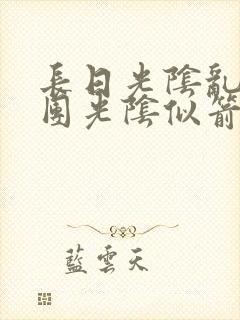 長日光陰亂
團光陰似箭
藍雲天